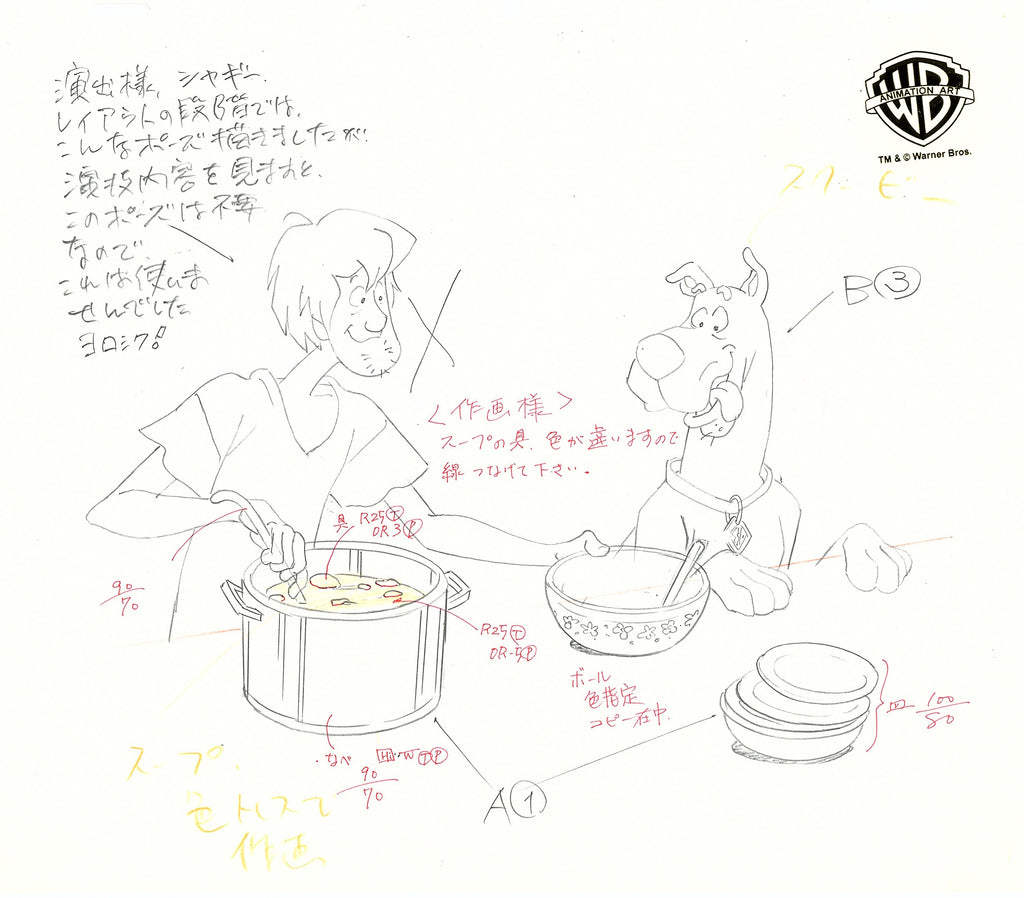 演出様、シャギー、
レイアウトの段階では、
こんなポーズ描きましたが、
演技内容を見ますと、
このポーズは不要
なので、
これは使いま
せんでした
ヨロシク!
WB
ANIMATION ART
TM & © Warner Bros.
B③
<作画様>
スープの具、色が違いますので
線つなげて下さい。
具 R25Ⓣ
OR3Ⓟ
90
70
R25Ⓣ
OR-5Ⓟ
ボール
色指定
コピー在中.
皿 100
80
なべ
W ⓉⓅ
90
70
A①
スープ、
色トレスで
作画